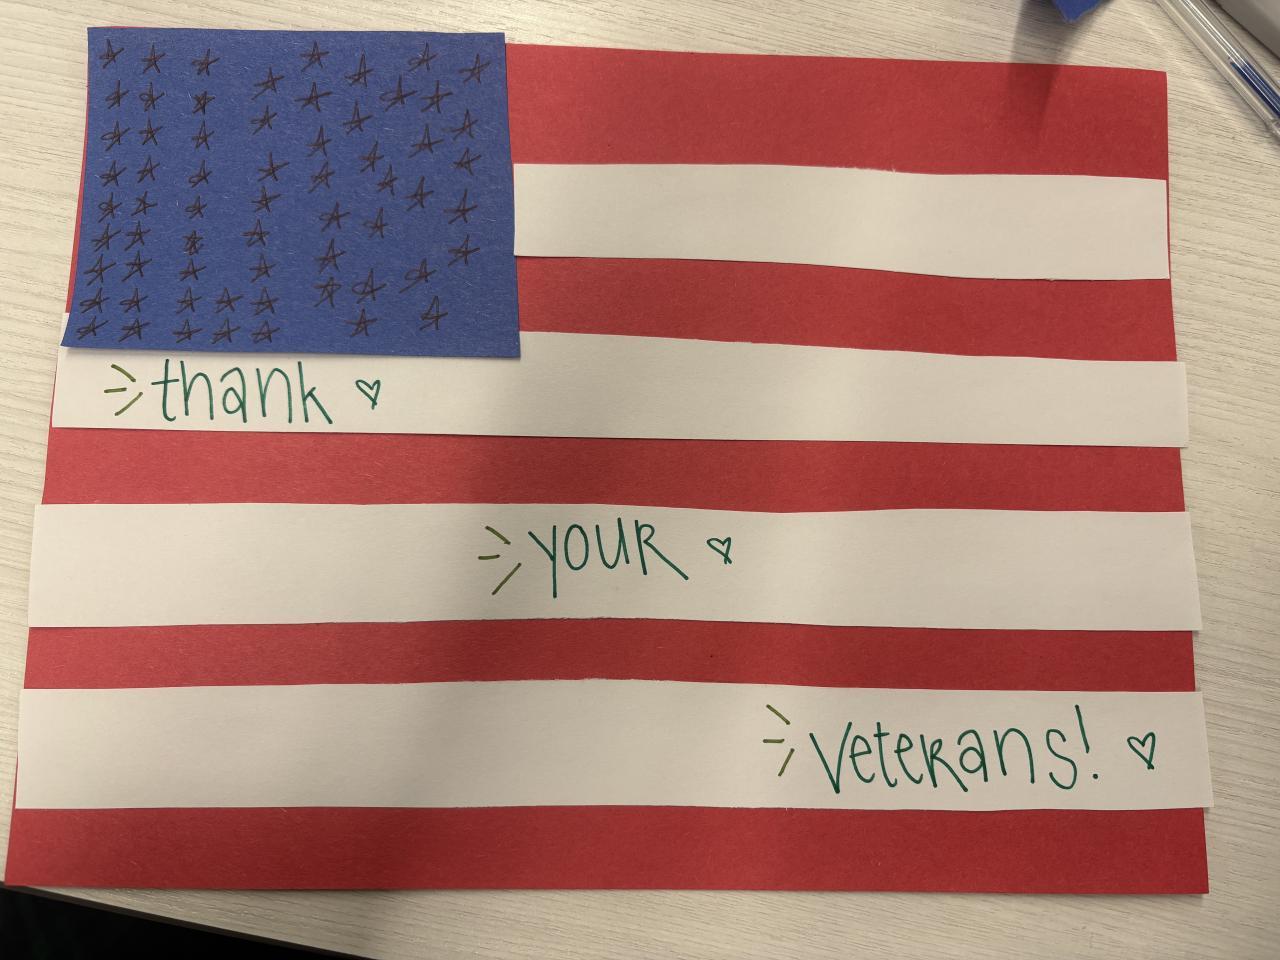 thank
your
veterans!